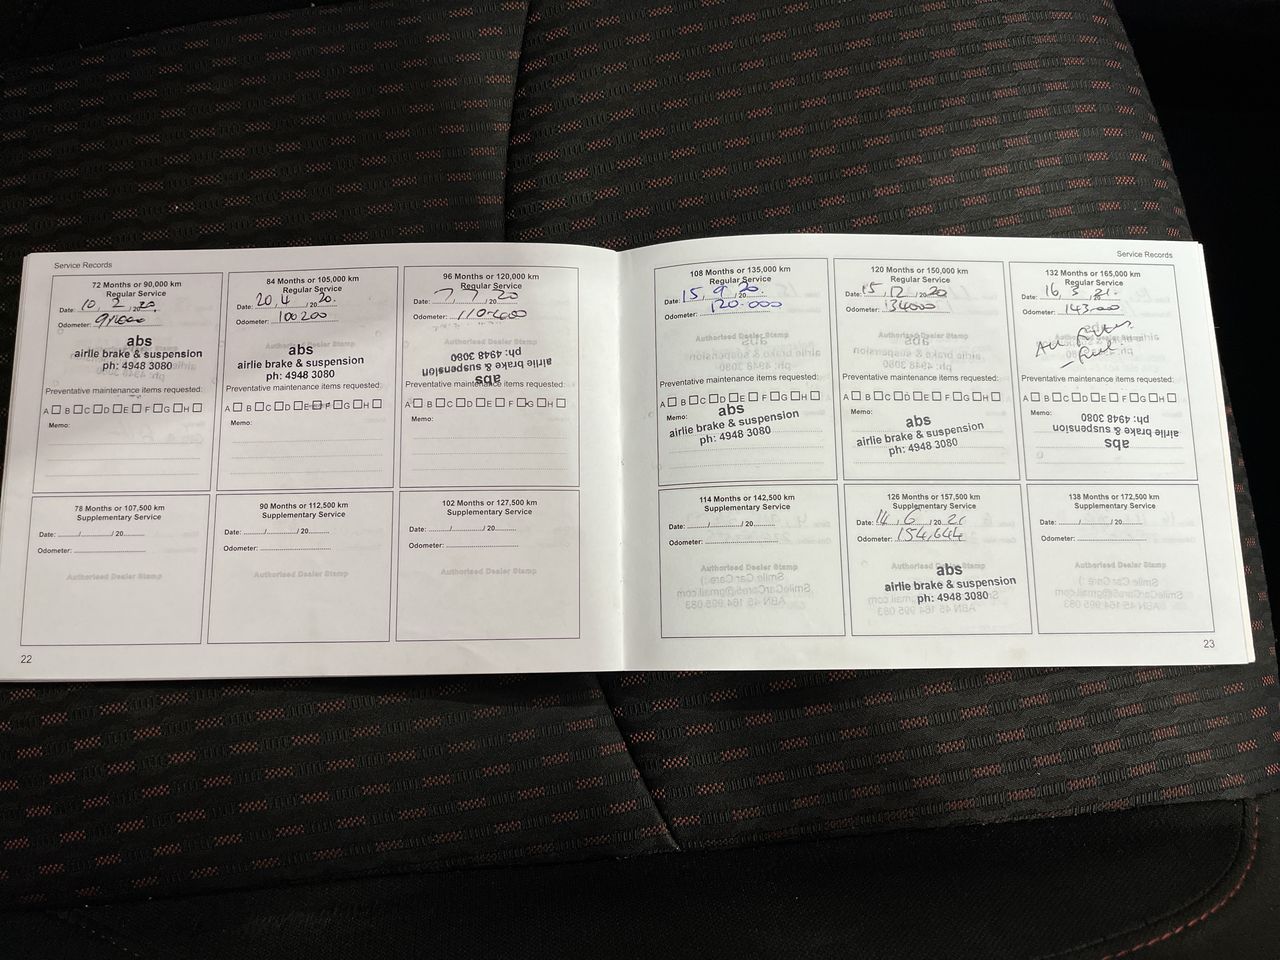 Service Records
72 Months or 90,000 km
Regular Service
Date: 10 / 2 / 20 20
Odometer: 91000
abs
airlie brake & suspension
ph: 4948 3080
Preventative maintenance items requested:
A B C D E F G H
Memo:
78 Months or 107,500 km
Supplementary Service
Date: ......./......./ 20.......
Odometer:
Authorised Dealer Stamp
84 Months or 105,000 km
Regular Service
Date: 20 / 4 / 20 20
Odometer: 100200
abs
airlie brake & suspension
ph: 4948 3080
Preventative maintenance items requested:
A B C D E F G H
Memo:
90 Months or 112,500 km
Supplementary Service
Date: ......./......./ 20.......
Odometer:
Authorised Dealer Stamp
96 Months or 120,000 km
Regular Service
Date: 7 / 7 / 20 20
Odometer: 110-400
abs
airlie brake & suspension
ph: 4948 3080
Preventative maintenance items requested:
A B C D E F G H
Memo:
102 Months or 127,500 km
Supplementary Service
Date: ......./......./ 20.......
Odometer:
Authorised Dealer Stamp
22
Service Records
108 Months or 135,000 km
Regular Service
Date: 15 / 9 / 20 20
Odometer: 120-000
Authorised Dealer Stamp
Preventative maintenance items requested:
A B C D E F G H
Memo:
abs
airlie brake & suspension
ph: 4948 3080
114 Months or 142,500 km
Supplementary Service
Date: ......./......./ 20.......
Odometer:
Authorised Dealer Stamp
120 Months or 150,000 km
Regular Service
Date: 15 / 12 / 20 20
Odometer: 134000
Authorised Dealer Stamp
Preventative maintenance items requested:
A B C D E F G H
Memo:
abs
airlie brake & suspension
ph: 4948 3080
126 Months or 157,500 km
Supplementary Service
Date: 14 / 6 / 20 21
Odometer: 154,644
Authorised Dealer Stamp
abs
airlie brake & suspension
ph: 4948 3080
132 Months or 165,000 km
Regular Service
Date: 16 / 3 / 20 21
Odometer: 143000
Preventative maintenance items requested:
A B C D E F G H
Memo:
abs
airlie brake & suspension
ph: 4948 3080
138 Months or 172,500 km
Supplementary Service
Date: ......./......./ 20.......
Odometer:
Authorised Dealer Stamp
23